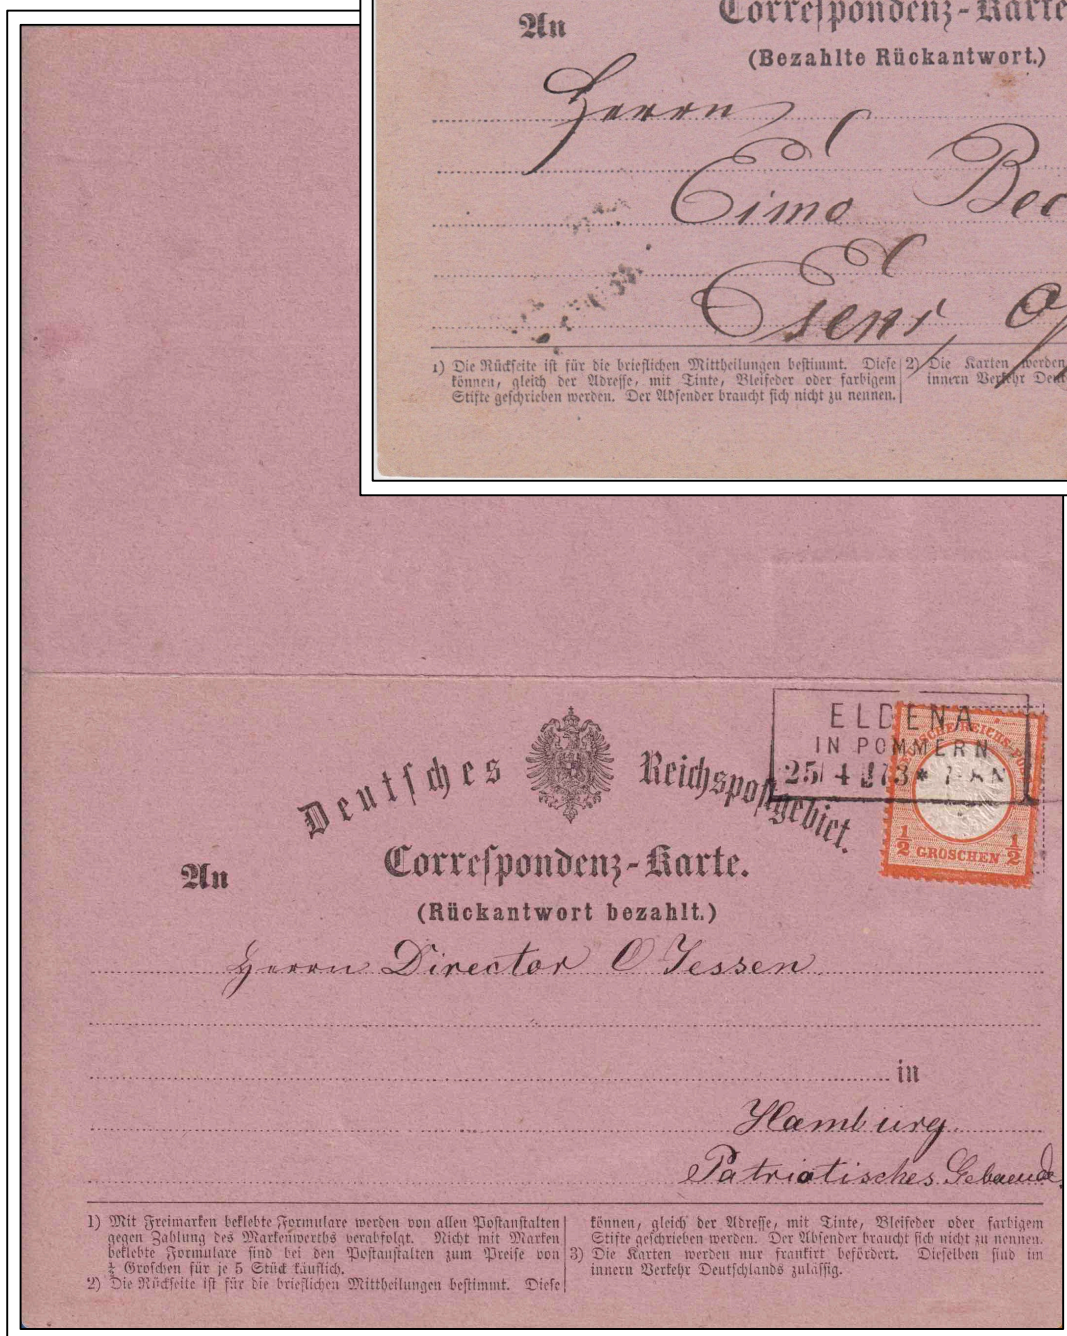 An
Correspondenz-Karte
(Bezahlte Rückantwort.)
Herrn
Eimo Bec
Esens, O/
1) Die Rückseite ist für die brieflichen Mittheilungen bestimmt. Diese
können, gleich der Adresse, mit Tinte, Bleifeder oder farbigem
Stifte geschrieben werden. Der Absender braucht sich nicht zu nennen.
2) Die Karten werden
innern Verkehr Deut
ELDENA
IN POMMERN
25 4 73 * 7-8 N
DEUTSCHE REICHS-POST
½ GROSCHEN ½
Deutsches Reichspostgebiet.
An
Correspondenz-Karte.
(Rückantwort bezahlt.)
Herrn Director O Jessen
in
Hamburg
Patriotisches Gebaeude
1) Mit Freimarken beklebte Formulare werden von allen Postanstalten
gegen Zahlung des Markenwerths verabfolgt. Nicht mit Marken
beklebte Formulare sind bei den Postanstalten zum Preise von
½ Groschen für je 5 Stück käuflich.
2) Die Rückseite ist für die brieflichen Mittheilungen bestimmt. Diese
können, gleich der Adresse, mit Tinte, Bleifeder oder farbigem
Stifte geschrieben werden. Der Absender braucht sich nicht zu nennen.
3) Die Karten werden nur frankirt befördert. Dieselben sind im
innern Verkehr Deutschlands zulässig.